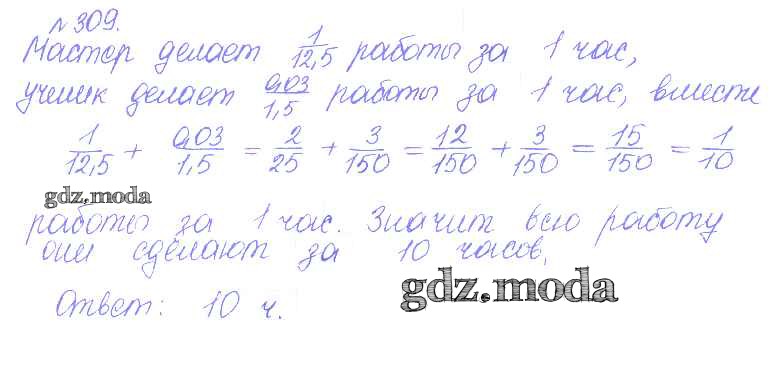 №309.
Мастер делает 1/12,5 работы за 1 час,
ученик делает 0,03/1,5 работы за 1 час, вместе
1/12,5 + 0,03/1,5 = 2/25 + 3/150 = 12/150 + 3/150 = 15/150 = 1/10
gdz.moda
работы за 1 час. Значит всю работу
они сделают за 10 часов.
gdz.moda
Ответ: 10 ч.